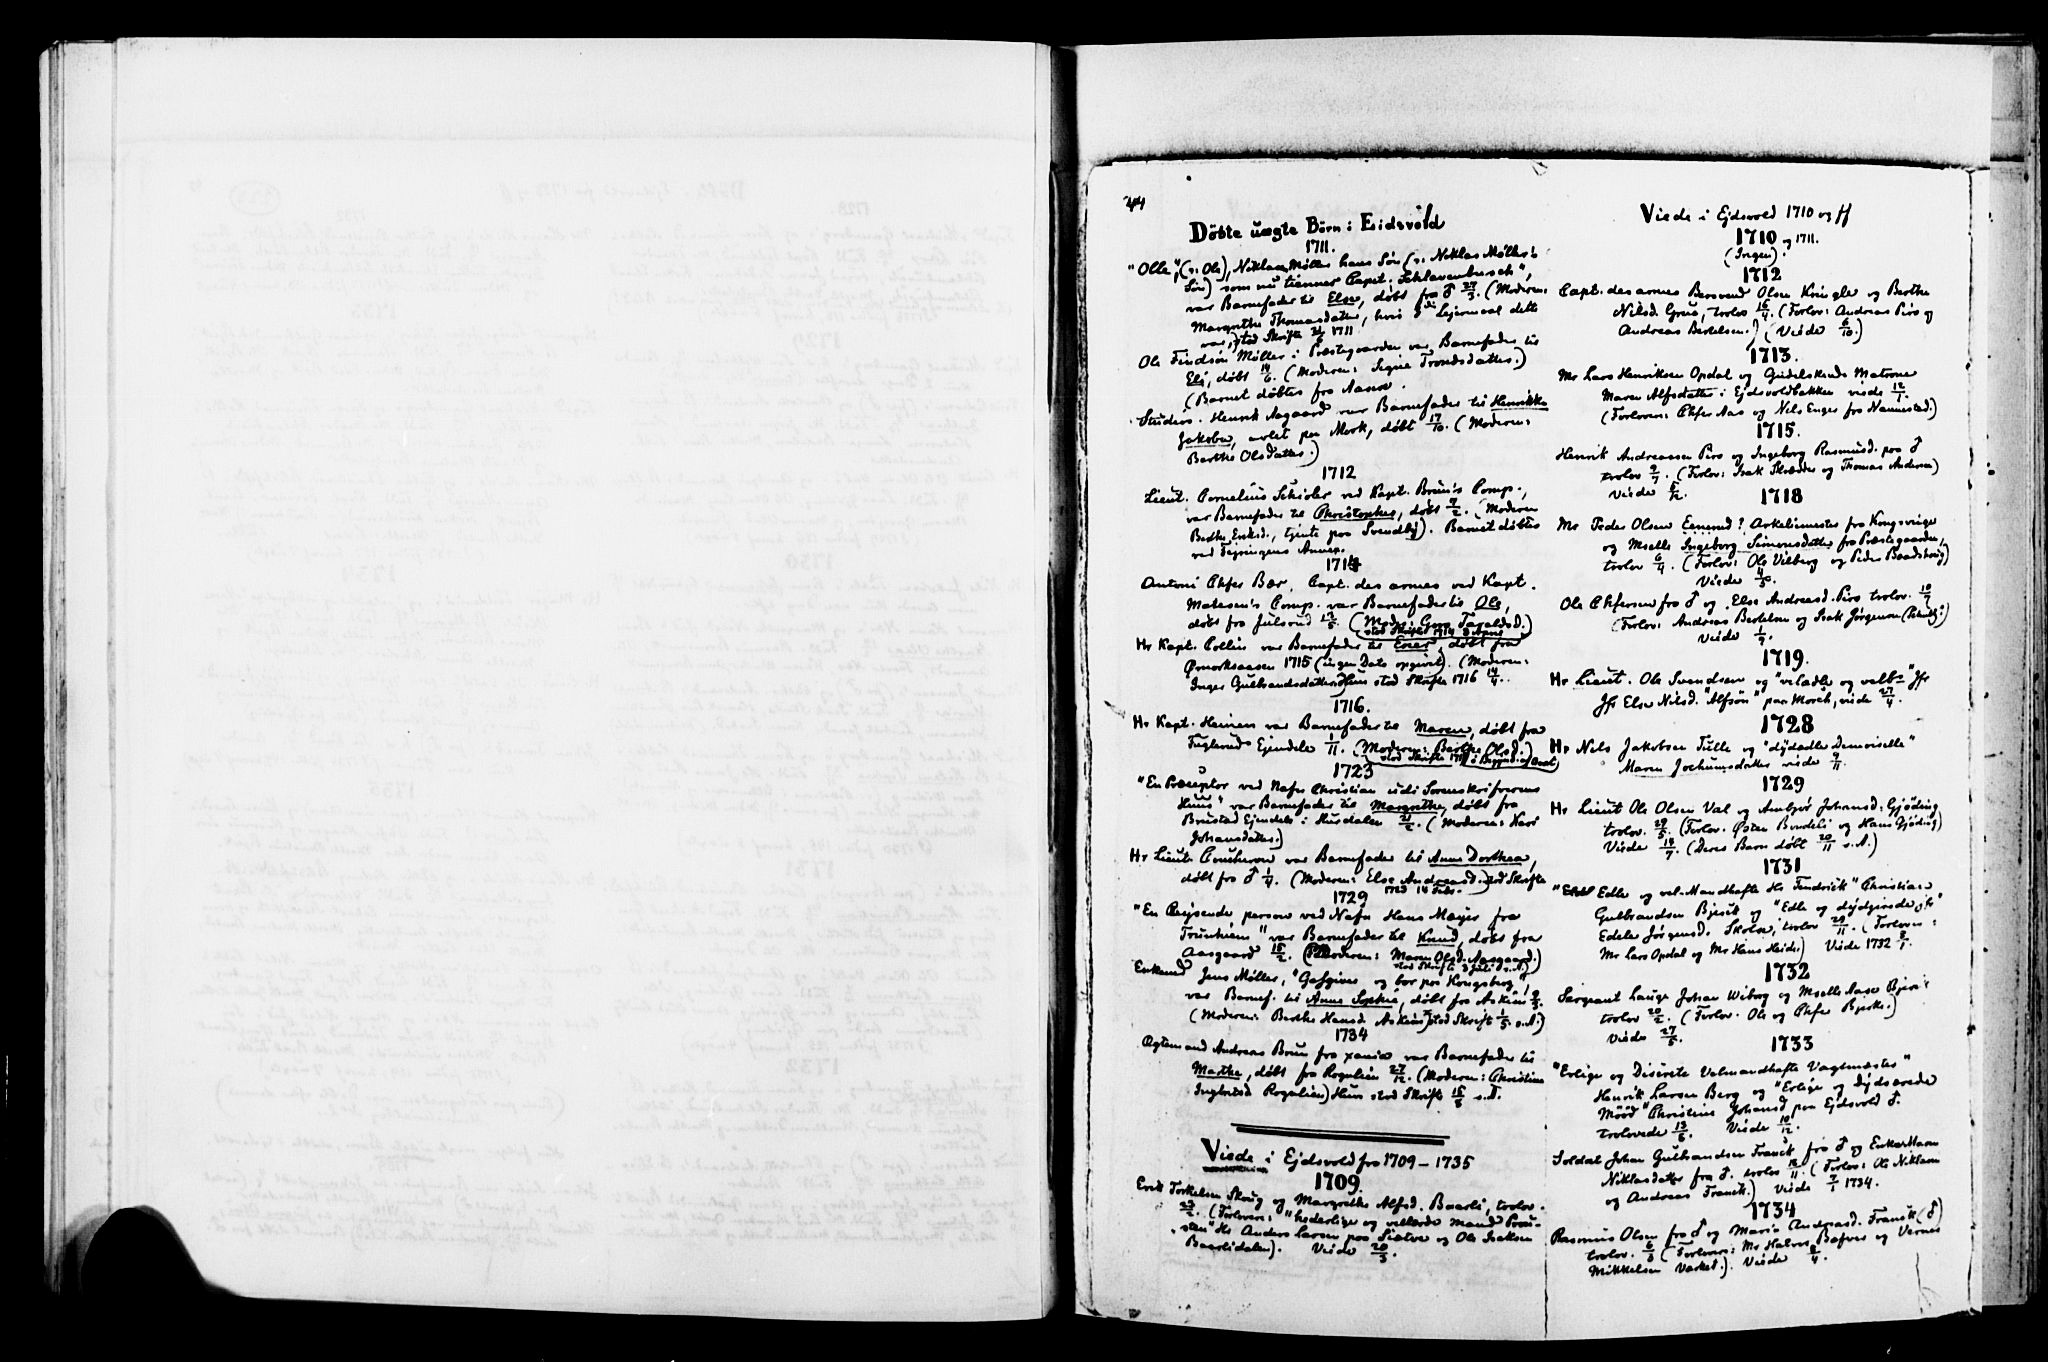 44
Döbte uægte Börn i Eidsvold
1711.
"Olle", (ɔ: Ole), Niklaus Møller hans Søn (ɔ: Niklas Møller's
Søn) som nu tienner Capt: Schlavenbusch",
var Barnefader til Else, döbt fra ♂ 27/3. (Moderen:
Margrethe Thomasdatter, hvis 3die Lejermaal dette
var, stod Skrifte 21/6 1711
Ole Findsön Møller i Præstegaarden var Barnefader til
Eli, döbt 14/6. (Moderen: Signe Trondsdatter.)
(Barnet döbtes fra Aanse.
Studios. Henrik Aagaard var Barnefader til Henrikke
Jakobea, avlet paa Mork, döbt 17/10. (Moderen:
Berthe Olsdatter.)
1712
Lieut. Cornelius Schiöler ved Kapt. Brun's Comp.,
var Barnefader til Christopher, döbt 7/2. (Moderen
Berthe Eriksd., tjente paa Svendby). Barnet döbtes
ved Feyringens Annex.
1714
Antoni Chfer Bær, Capt. des armes ved Kapt.
Matesen's Comp. var Barnefader til Ole,
döbt fra Julsrud 13/5. (Moder: Guro Taraldsd.)
stod Skrifte 1714 3 Aprs
Hr Kapt. Collin var Barnefader til Ener, döbt fra
Ømorksaasen 1715 (ingen Dato opgivet). (Moderen:
Inger Gulbrandsdatter) Hun stod Skrifte 1716 14/4.
1716.
Hr Kapt. Heinen var Barnefader til Maren, döbt fra
Fuglerud Ejendele 1/11. (Moderen: Berthe Olsd.)
stod Skrifte 1717 i Begynd. af Aaret
1723
"En Præceptor ved Nafn Christian udi Sorenskrifverens
Huus" var Barnefader til Margrethe, döbt fra
Brustad Ejendele i Hurdalen 21/2. (Moderen: Kari
Johansdatter.)
Hr Lieut: Coucheron var Barnefader til Anne Dorthea,
döbt fra ♂ 1/4. (Moderen: Else Andreasd. stod Skrifte
1723 14 Febr.
1729
"En Reysende person ved Nafn Hans Meyer fra
Trundhiem" var Barnefader til Knud, döbt fra
Aasgaard 15/2. (Moderen: Maren Olsd. Aasgaard.)
stod Skrifte 3 Juli s. A.)
Enkemd Jens Møller, "Gafgiver og bor paa Kongsberg",
var Barnef. til Anne Sophie, döbt fra Askim
(Moderen: Berthe Hansd. Askim) stod Skrift 1/5 s. A.)
1734
Agtem and Andreas Brun fra xania var Barnefader til
Marthe, döbt fra Rogulien 27/12. (Moderen: Christine
Ingbretsd Rogulien) Hun stod Skrifte 15/5 s. A.
Viede i Ejdsvold fra 1709 - 1735
1709
Erik Torkelsen Skrug og Margrethe Alfsd. Baarli, trolov.
23/2. (Forlovere: "hederlige og vellærde Mand Prou-
sten" Hr Anders Larsen paa Sætre og Ole Isaksen
Baarlidalen). Viede 20/5.
Viede i Ejdsvold 1710 og ff
1710 og 1711.
(Ingen).
1712
Capt. des armes Bersvend Olsen Kringle og Berthe
Nilsd. Grue, trolov 16/4. (Forlov: Andreas Piro og
Andreas Bertelsen.) (Viede 6/10.)
1713.
Mr Lars Henriksen Opdal og Gudelskende Matrone
Maren Alfsdatter i Ejdsvoldbakken viede 12/1.
(Forlovere: Chfer Aas og Nils Enger fra Nannestad.)
1715.
Henrik Andreassen Piro og Ingeborg Rasmusd. paa ♂
trolov 2/7. (Forlov: Isak Skræder og Thomas Andersen)
Viede 6/12.
1718
Mr Peder Olsen Eenerud? Arkelimester fra Kongsvinger
og Mselle Ingeborg Simensdatter fra Præstegaarden,
trolov 6/4. (Forlov: Ole Vilberg og Peder Baadshaug)
Viede 4/5.
Ole Chfersen fra ♂ og Else Andreasd. Piro trolov. 10/7
(Forlov: Andreas Bertelsen og Isak Jörgensen (Schultz?)
Viede 1/9.
1719.
Hr Lieut. Ole Svendsen og "veladle og velb-" Jfr
Jfr Else Nilsd. "Alfsön" paa Morch, viede 27/4.
1728
Hr Nils Jakobsen Tulle og "dydædle Demoiselle"
Maren Jochumsdatter viede 9/11.
1729
Hr Lieut Ole Olsen Val og Ambjør Johansd. Gjöding
trolov. 29/5. (Forlov. Østen Bundeli og Hans Gjöding)
Viede 14/7. (Deres Barn döbt 20/11 s. A.)
1731
"Edle og vel-Mandhafte Hr Fendrick" Christian
Gulbrandsen Bjerck og "Edle og dydzirede Jfr"
Edele Jörgensd. Skolse, trolov 29/11. (Forlovere:
Mr Lars Opdal og Mr Hans Heide.) Viede 1732 2/1.
1732
Sargeant Lauge Johan Wiborg og Mselle Aase Bjer:
trolov 20/2. (Forlov. Ole og Chfer Bjerke.)
Viede 27/5.
1733
"Erlige og Diserete Velmandhafte Vagtmæster"
Henrik Larsen Berg og "Erlige og Dydsærede
Möod" Christine Johansd paa Ejdsvold ♂.
trolovede 13/6. Viede 10/12.
Soldat Johan Gulbrandsen Franck fra ♂ og Enke Maren
Niklasdatter fra ♂. trolov 12/11. (Forlov: Ole Niklasen
og Andreas Franck.) Viede 7/1 1734.
1734
Rasmus Olsen fra ♂ og Maria Andreasd. Franck (♂)
trolov. 6/3 (Forlovere: Mr Halvor Bafver og Verner
Mikkelsen Værket.) Viede 8/4.